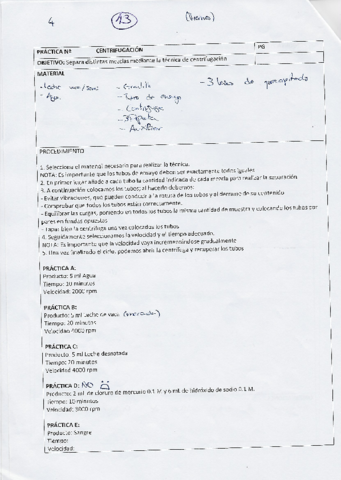 4
13
(Jueves)
PRÁCTICA Nº CENTRIFUGACIÓN PG
OBJETIVO: Separa distintas mezclas mediante la técnica de centrifugación
MATERIAL
- Leche
- Agua
- Gradilla
- Tubo de ensayo
- Centrífuga
- Pipeta
- 3 tubos de
PROCEDIMIENTO
1. Selecciona el material necesario para realizar la técnica.
NOTA: Es importante que los tubos de ensayo deben ser exactamente todos iguales
2. En primer lugar añade a cada tubo la cantidad indicada de cada mezcla para realizar la separación
3. A continuación colocamos los tubos; al hacerlo debemos:
- Evitar vibraciones, que pueden conducir a la rotura de los tubos y al derrame de su contenido
- Comprobar que todos los tubos están correctamente.
- Equilibrar las cargas, poniendo en todos los tubos la misma cantidad de muestra y colocando los tubos por
pares en fundas opuestas
- Tapar bien la centrífuga una vez colocados los tubos
4. Seguidamente seleccionamos la velocidad y el tiempo adecuado.
NOTA: Es importante que la velocidad vaya incrementándose gradualmente
5. Una vez finalizado el ciclo, podemos abrir la centrífuga y recuperar los tubos
PRÁCTICA A:
Producto: 5 ml Agua
Tiempo: 10 minutos
Velocidad: 2000 rpm
PRÁCTICA B:
Producto: 5 ml Leche de vaca
Tiempo: 20 minutos
Velocidad: 4000 rpm
PRÁCTICA C:
Producto: 5 ml Leche desnatada
Tiempo: 20 minutos
Velocidad 4000 rpm
PRÁCTICA D: NO
Producto: 2 ml de cloruro de mercurio 0.1 M y 6 ml de hidróxido de sodio 0.1 M.
Tiempo: 10 minutos
Velocidad: 3000 rpm
PRÁCTICA E:
Producto: Sangre
Tiempo:
Velocidad: